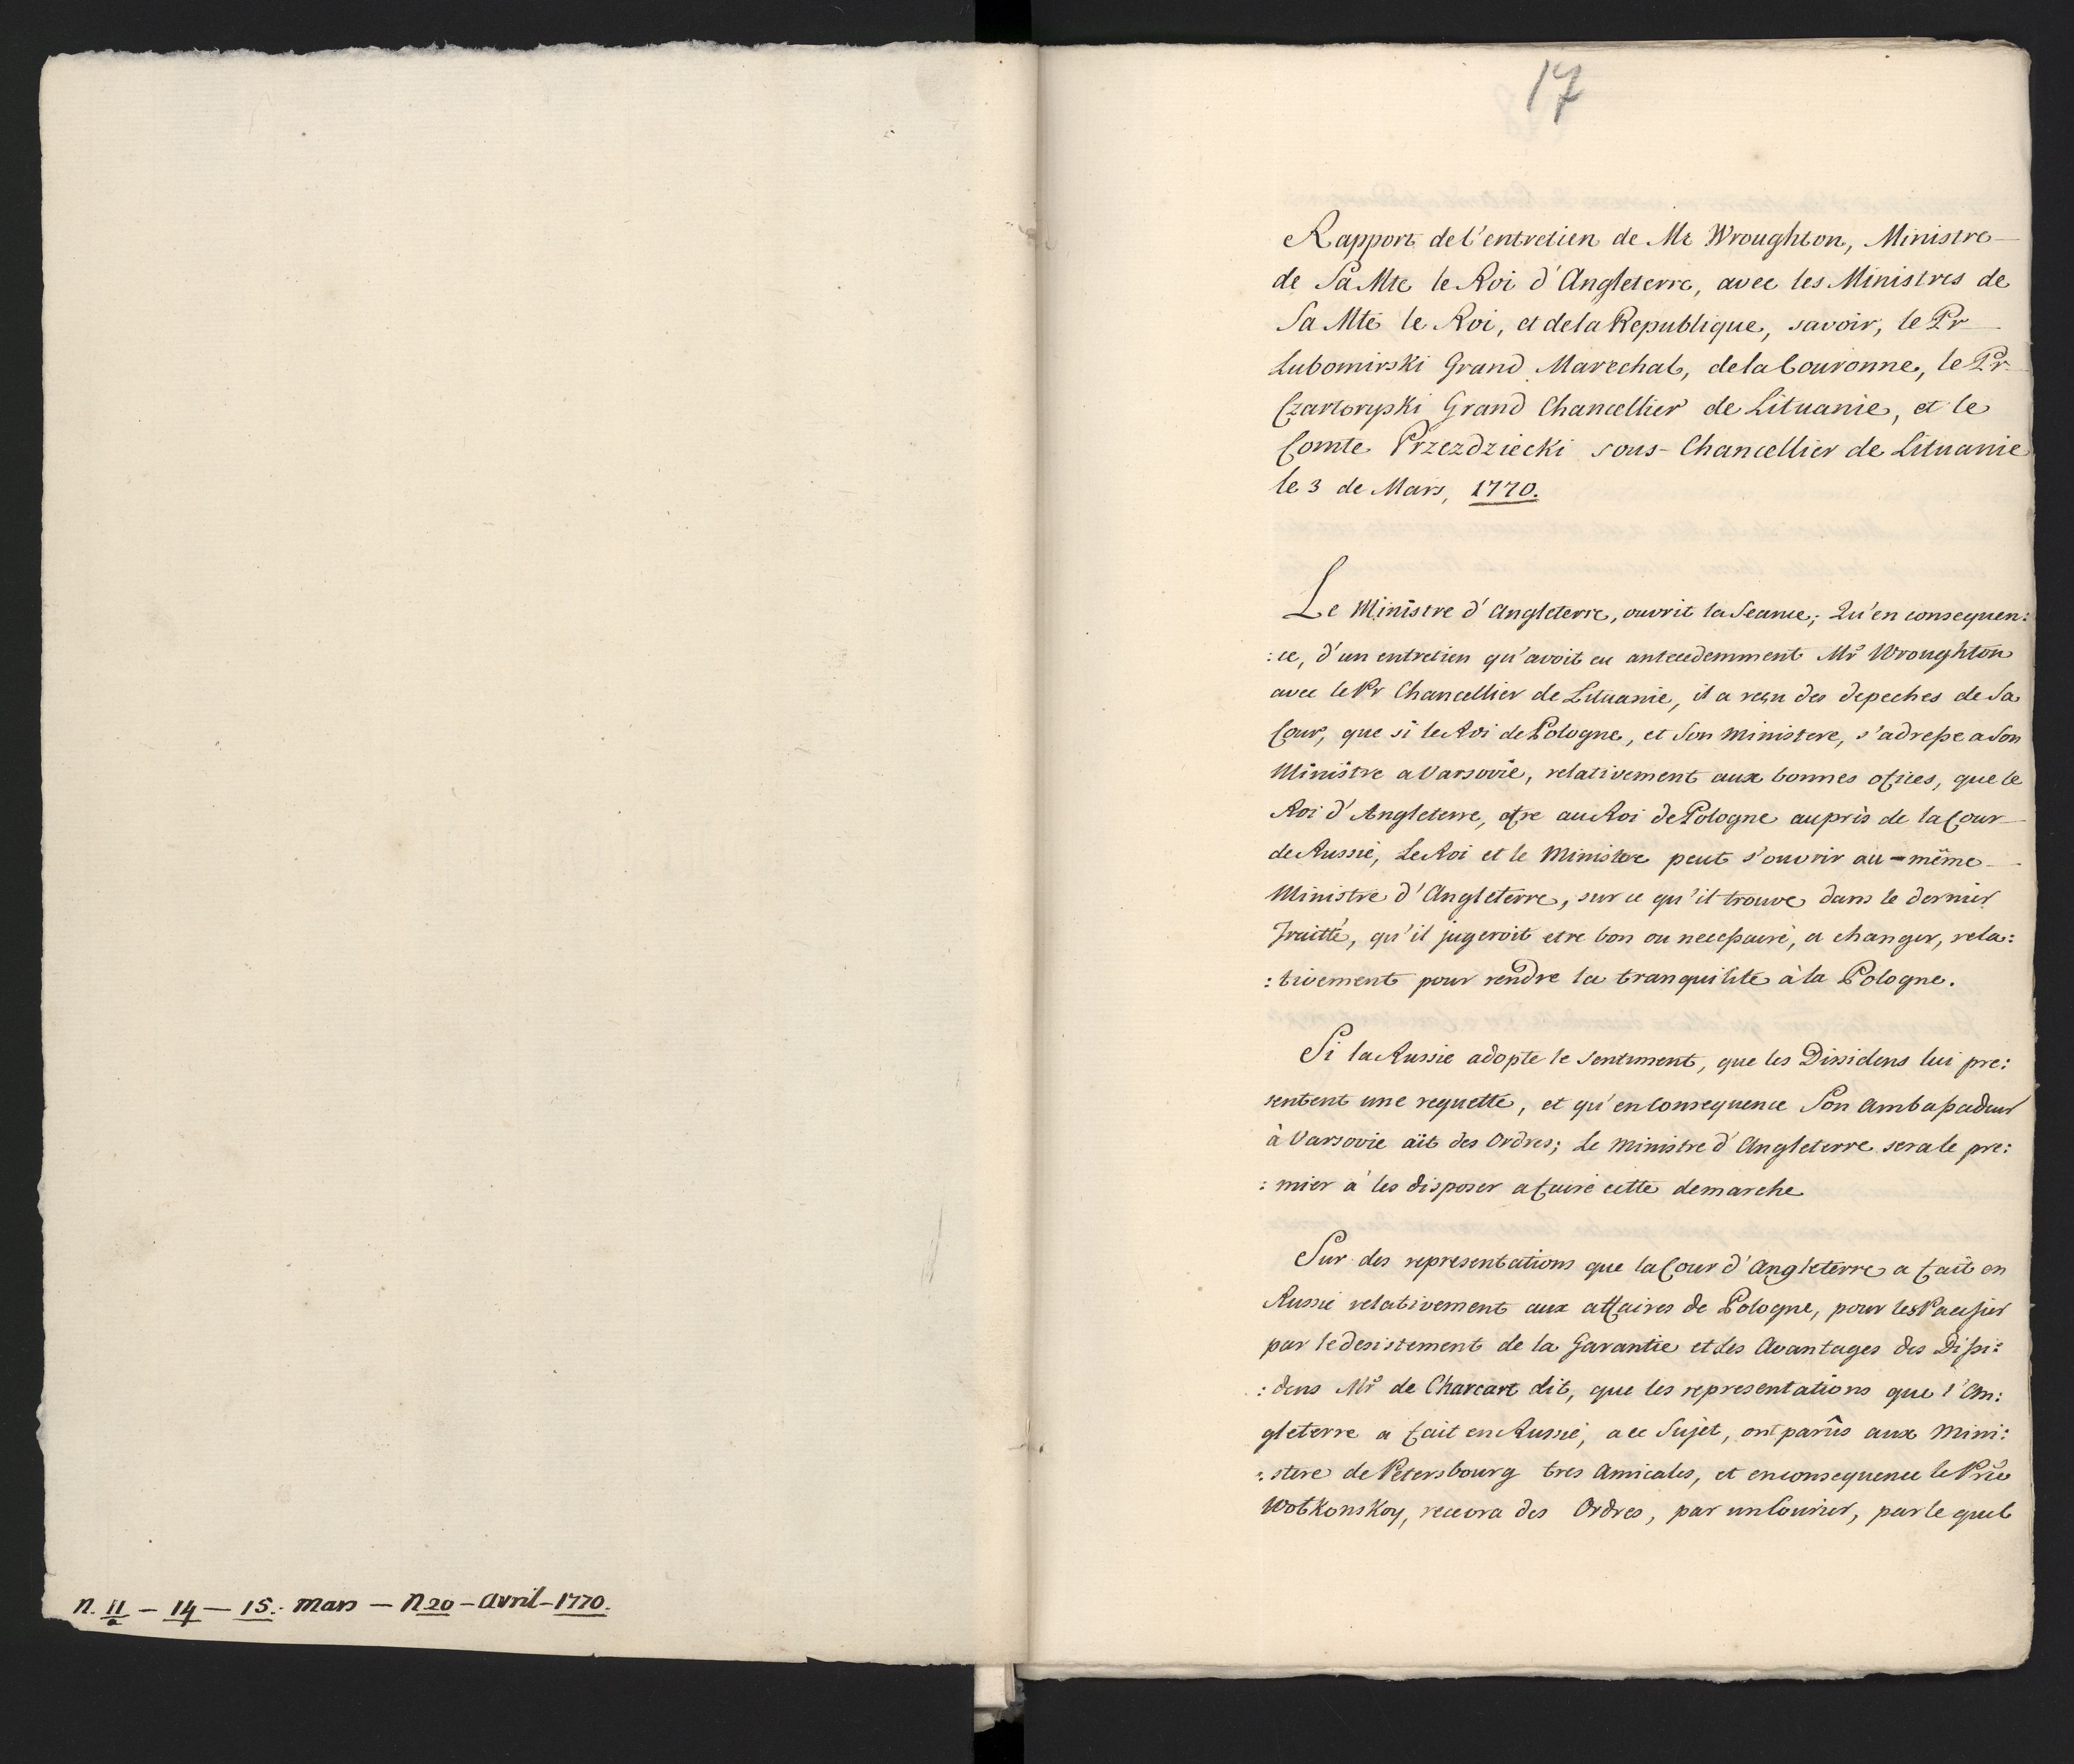 n. 11a – 14 – 15. mars – N 20 – avril – 1770.
17
Rapport de l'entretien de Mr Wroughton, Ministre
de Sa Mté le Roi d'Angleterre, avec les Ministres de
Sa Mté le Roi, et de la Republique, savoir, le Pr
Lubomirski Grand Marechal, de la Couronne, le Pr
Czartoryski Grand Chancellier de Lituanie, et le
Comte Przezdziecki sous-Chancellier de Lituanie
le 3 de Mars, 1770.
Le Ministre d'Angleterre, ouvrit la Seance; Qu'en consequen:
:ce, d'un entretien qu'avoit eu antecedemment Mr Wroughton
avec le Pr Chancellier de Lituanie, il a reçu des depeches de Sa
Cour, que si le Roi de Pologne, et Son ministere, s'adresse a Son
Ministre a Varsovie, relativement aux bonnes ofices, que le
Roi d'Angleterre, ofre au Roi de Pologne auprès de la Cour
de Russie, Le Roi et le Ministere peut s'ouvrir au-même
Ministre d'Angleterre, sur ce qu'il trouve dans le dernier
Traitté, qu'il jugeroit etre bon ou necessaire, a changer, rela:
:tivement pour rendre la tranquilité à la Pologne.
Si la Russie adopte le sentiment, que les Dissidens lui pre:
sentent une requette, et qu'en consequence Son Ambassadeur
à Varsovie aït des Ordres; Le ministre d'Angleterre sera le pre:
:mier à les disposer a faire cette demarche
Sur des representations que la Cour d'Angleterre a fait en
Russie relativement aux affaires de Pologne, pour les Pacifier
par le desistement de la Garantie et des Avantages des Dissi:
:dens Mr de Charcart dit, que les representations que l'An:
gleterre a fait en Russie, a ce Sujet, ont parûs aux Mini:
:stere de Petersbourg tres Amicales, et en consequence le Prce
Wolkonskoy, recevra des Ordres, par un Courier, par le quel